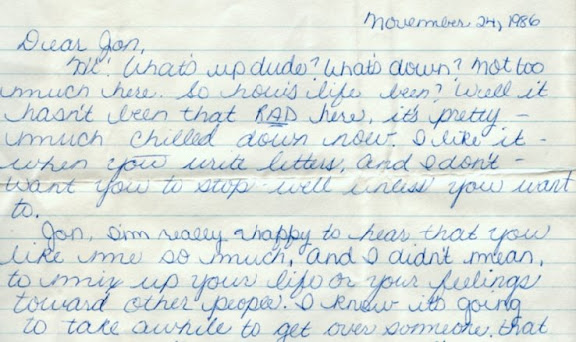 November 24, 1986
Dear Jon,
"Hi"! What's up dude? What's down? Not too
much here. So how's life been? Well it
hasn't been that RAD here, it's pretty -
much chilled down now. I like it -
when you write letters, and I don't -
want you to stop - well unless you want
to.
Jon, I'm really happy to hear that you
like me so much, and I didn't mean,
to mix up your life or your feelings
toward other people. I know its going
to take awhile to get over someone that